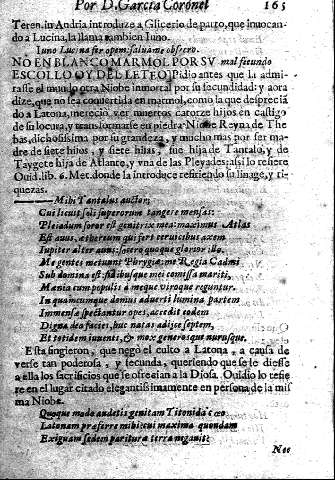 Por D. Garcia Coronel 165
Teren. in Andria introduze a Glicerio de parto, que inuocan-
do a Lucina, la llama tambien Iuno.
Iuno Lucina fer opem, saluame obsecro.
NO EN BLANCO MARMOL POR SV mal fecundo
ESCOLLO OY DEL LETEO Pidio antes que la admi-
rasse el mundo otra Niobe inmortal por su fecundidad: y aora
dize, que no sea conuertida en marmol, como la que desprecia
do a Latona, mereciò ver muertos catorze hijos en castigo
de su locura, y transformarse en piedra: Niobe Reyna de The
bas, dichosissima por su grandeza, y mucho mas por ser ma-
dre de siete hijos, y siete hijas, fue hija de Tantalo, y de
Taygete hija de Atlante, y vna de las Pleyades; assi lo refiere
Ouid. lib. 6. Met. donde la introduce refiriendo su linage, y ri-
quezas.
Mihi Tantalus auctor;
Cui licuit soli superorum tangere mensas:
Pleiadum soror est genitrix mea: maximus Atlas
Est auus, æthereum qui fert ceruicibus axem
Iupiter alter auus; socero quoque glorior illo.
Me gentes metuunt Phrygia: me Regia Cadmi
Sub domina est: fidibusque mei comissa mariti,
Mænia cum populis à meque viroque reguntur.
In quamcumque domus aduerti lumina partem
Immensæ spectantur opes, accedit eodem
Digna dea facies, huc natas adijce septem,
Et totidem iuuenes, & mox generosque nurusque.
Esta fingieron, que negò el culto a Latona, a causa de
verse tan poderosa, y fecunda, queriendo que se le diesse
a ella los sacrificios que se ofrecian a la Diosa. Ouidio lo refie
re en el lugar citado elegantissimamente en persona de la mis
ma Niobe.
Quoque modo audetis genitam Titonida cæo
Latonam præferre mihi: cui maxima quondam
Exiguam sedem parituræ terra negauit
Nec